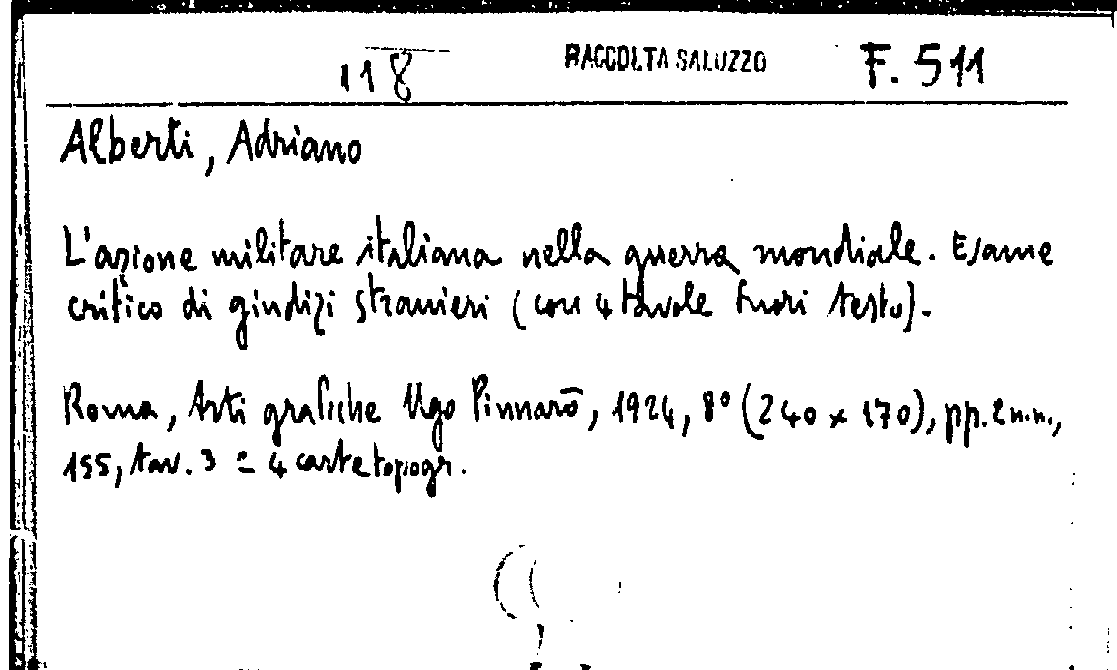 118 RACCOLTA SALUZZO F. 511
Alberti, Adriano
L'azione militare italiana nella guerra mondiale. Esame
critico di giudizi stranieri (con 4 tavole fuori testo).
Roma, Arti grafiche Ugo Pinnarò, 1924, 8° (240 x 170), pp. 2 n.n.,
155, tav. 3 e 4 carte topogr.